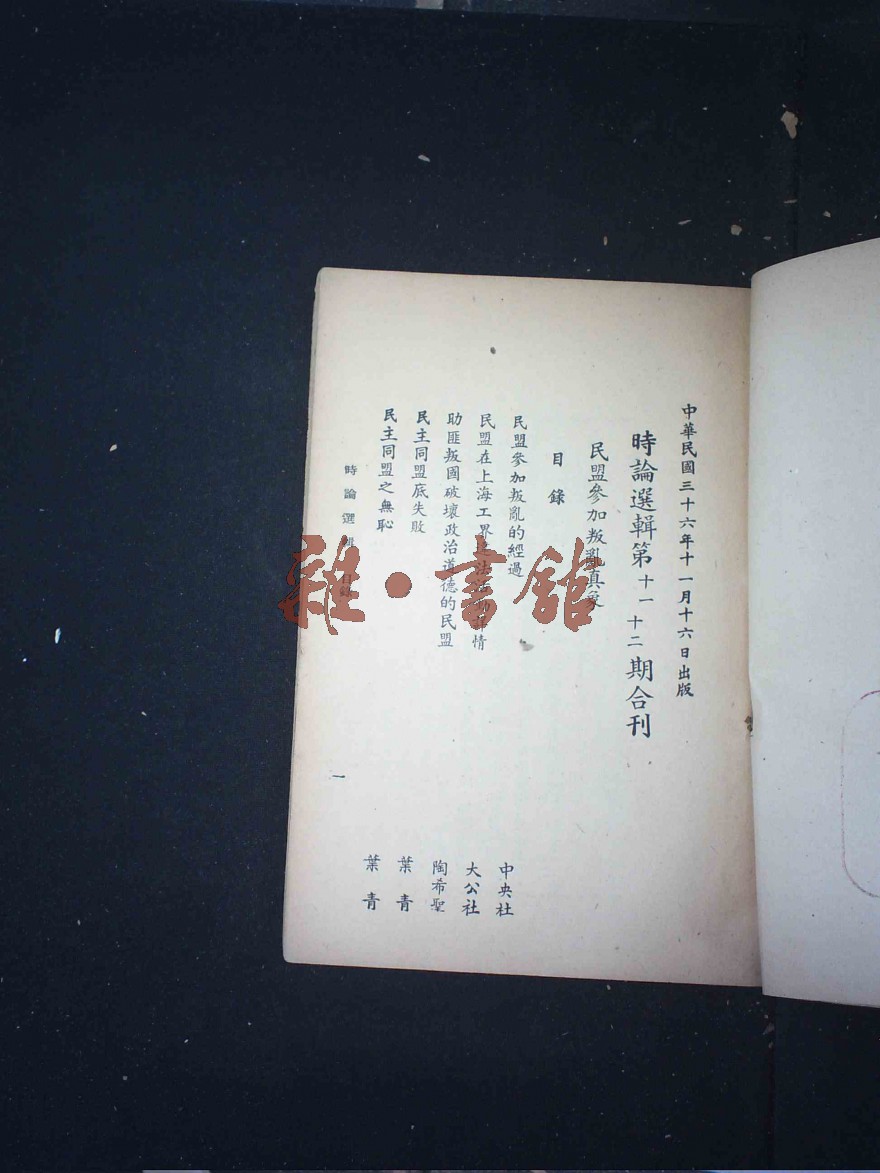 中華民國三十六年十一月十六日出版
時論選輯第十一十二期合刊
民盟參加叛亂真象
目錄
民盟參加叛亂的經過 中央社
民盟在上海工界 情 大公社
助匪叛國破壞政治道德的民盟 陶希聖
民主同盟底失敗 葉青
民主同盟之無恥 葉青
時論選 目錄
一
雜·書館